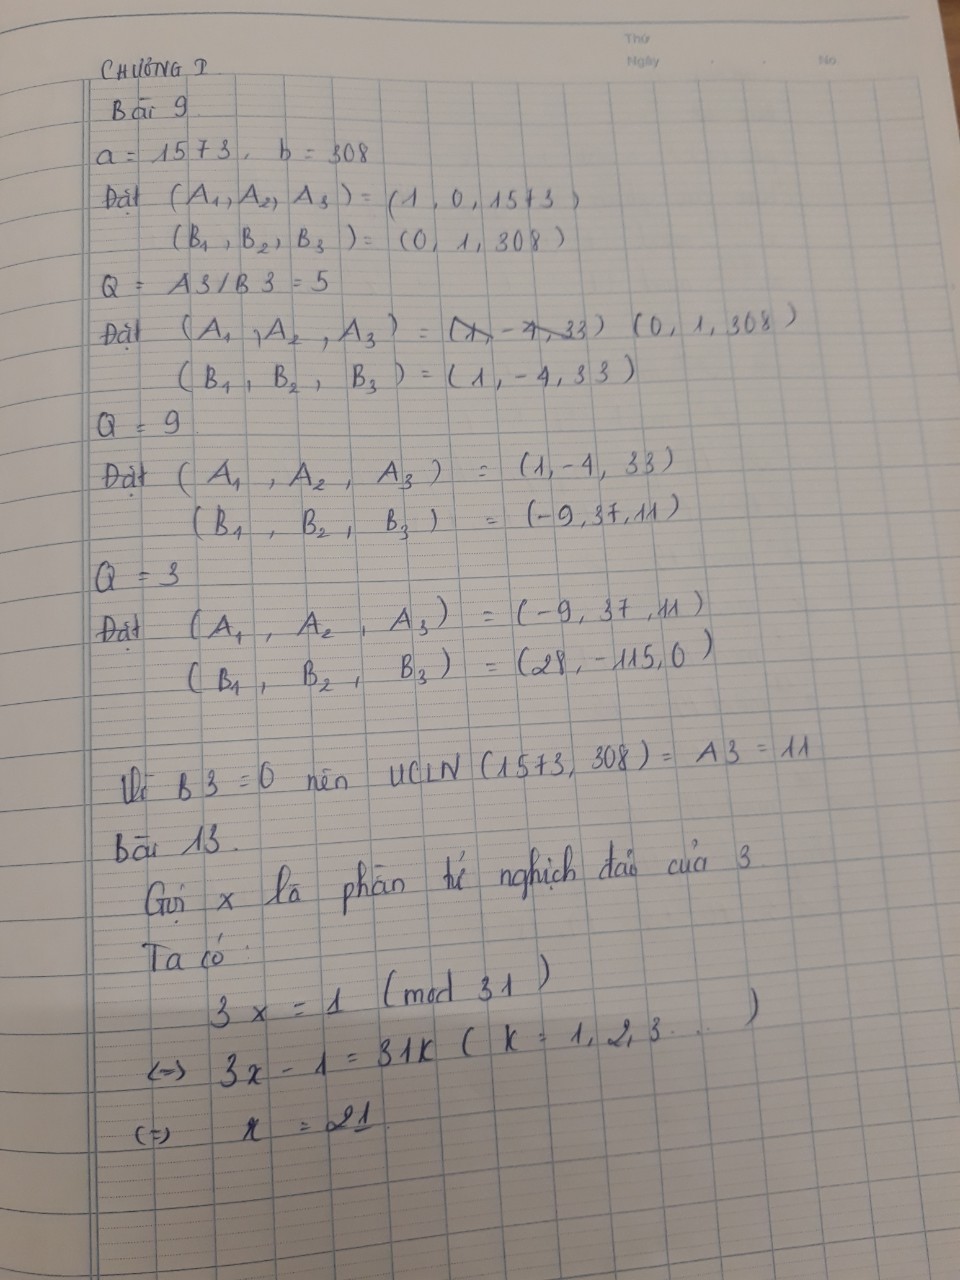 Thứ
Ngày . . No
CHƯƠNG I
Bài 9
a = 1573, b = 308
Đặt (A1, A2, A3) = (1, 0, 1573)
(B1, B2, B3) = (0, 1, 308)
Q = A3/B3 = 5
Đặt (A1, A2, A3) = (1, -4, 33) (0, 1, 308)
(B1, B2, B3) = (1, -4, 33)
Q = 9
Đặt (A1, A2, A3) = (1, -4, 33)
(B1, B2, B3) = (-9, 37, 11)
Q = 3
Đặt (A1, A2, A3) = (-9, 37, 11)
(B1, B2, B3) = (28, -115, 0)
Vì B3 = 0 nên UCLN (1573, 308) = A3 = 11
Bài 13.
Gọi x là phần tử nghịch đảo của 3
Ta có :
3x = 1 (mod 31)
<=> 3x - 1 = 31K (K = 1, 2, 3 . . . )
(=) x = 21